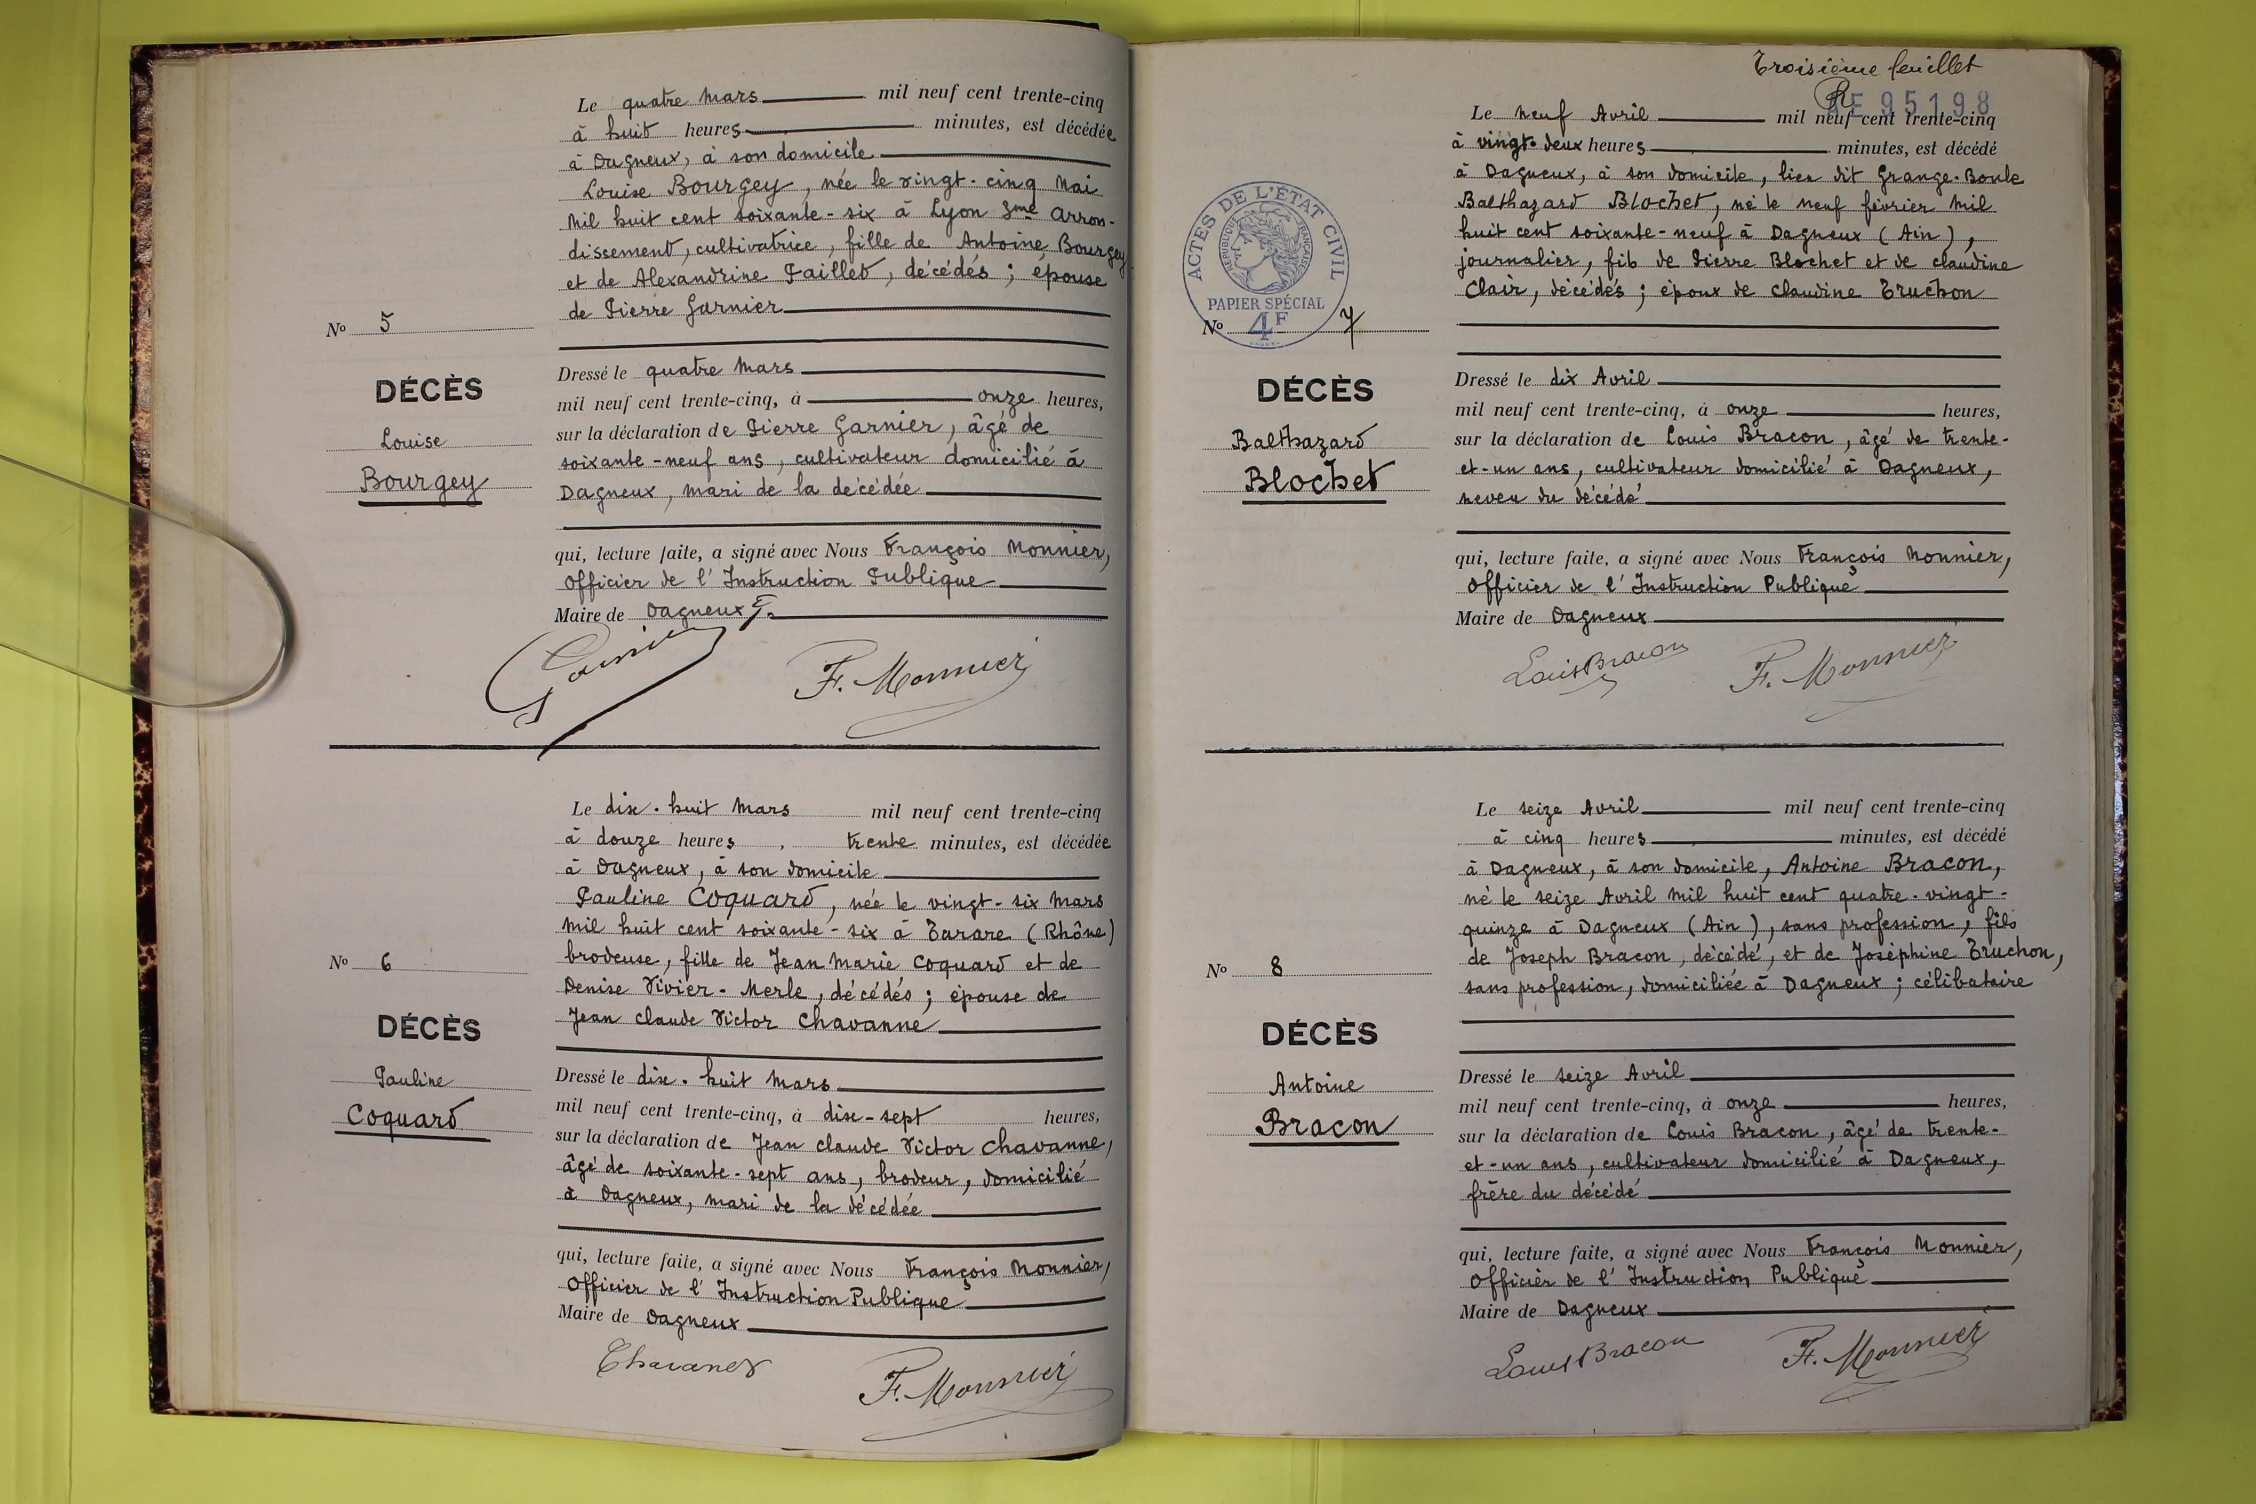 Le quatre Mars mil neuf cent trente-cinq
à huit heures minutes, est décédée
à Dagneux, à son domicile
Louise Bourgey, née le vingt-cinq Mai
Mil huit cent soixante-six à Lyon 3me arron-
dissement, cultivatrice, fille de Antoine Bourgey
et de Alexandrine Paillet, décédés ; épouse
de Pierre Garnier
No 5
DÉCÈS
Louise
Bourgey
Dressé le quatre Mars
mil neuf cent trente-cinq, à onze heures,
sur la déclaration de Pierre Garnier, âgé de
soixante-neuf ans, cultivateur domicilié à
Dagneux, mari de la décédée
qui, lecture faite, a signé avec Nous François Monnier,
Officier de l'Instruction Publique
Maire de Dagneux
Garnier
F. Monnier
Le dix-huit Mars mil neuf cent trente-cinq
à douze heures, trente minutes, est décédée
à Dagneux, à son domicile
Pauline Coquard, née le vingt-six Mars
Mil huit cent soixante-six à Tarare (Rhône)
brodeuse, fille de Jean Marie Coquard et de
Denise Vivier-Merle, décédés ; épouse de
Jean Claude Victor Chavanne
No 6
DÉCÈS
Pauline
Coquard
Dressé le dix-huit Mars
mil neuf cent trente-cinq, à dix-sept heures,
sur la déclaration de Jean Claude Victor Chavanne,
âgé de soixante-sept ans, brodeur, domicilié
à Dagneux, mari de la décédée
qui, lecture faite, a signé avec Nous François Monnier,
Officier de l'Instruction Publique
Maire de Dagneux
F. Monnier
Troisième feuillet
95198
Le neuf Avril mil neuf cent trente-cinq
à vingt-deux heures minutes, est décédé
à Dagneux, à son domicile, lieu dit Grange-Boule
Balthazard Blochet, né le neuf février Mil
huit cent soixante-neuf à Dagneux (Ain),
journalier, fils de Pierre Blochet et de Claudine
Clair, décédés ; époux de Claudine Truchon
ACTES DE L'ÉTAT CIVIL
RÉPUBLIQUE FRANÇAISE
PAPIER SPÉCIAL
4F
No 7
DÉCÈS
Balthazard
Blochet
Dressé le dix Avril
mil neuf cent trente-cinq, à onze heures,
sur la déclaration de Louis Bracon, âgé de trente-
et-un ans, cultivateur domicilié à Dagneux,
neveu du décédé
qui, lecture faite, a signé avec Nous François Monnier,
Officier de l'Instruction Publique
Maire de Dagneux
Louis Bracon
F. Monnier
Le seize Avril mil neuf cent trente-cinq
à cinq heures minutes, est décédé
à Dagneux, à son domicile, Antoine Bracon,
né le seize Avril Mil huit cent quatre-vingt-
quinze à Dagneux (Ain), sans profession, fils
de Joseph Bracon, décédé, et de Joséphine Truchon,
sans profession, domiciliée à Dagneux ; célibataire
No 8
DÉCÈS
Antoine
Bracon
Dressé le seize Avril
mil neuf cent trente-cinq, à onze heures,
sur la déclaration de Louis Bracon, âgé de trente-
et-un ans, cultivateur domicilié à Dagneux,
frère du décédé
qui, lecture faite, a signé avec Nous François Monnier,
Officier de l'Instruction Publique
Maire de Dagneux
Louis Bracon
F. Monnier